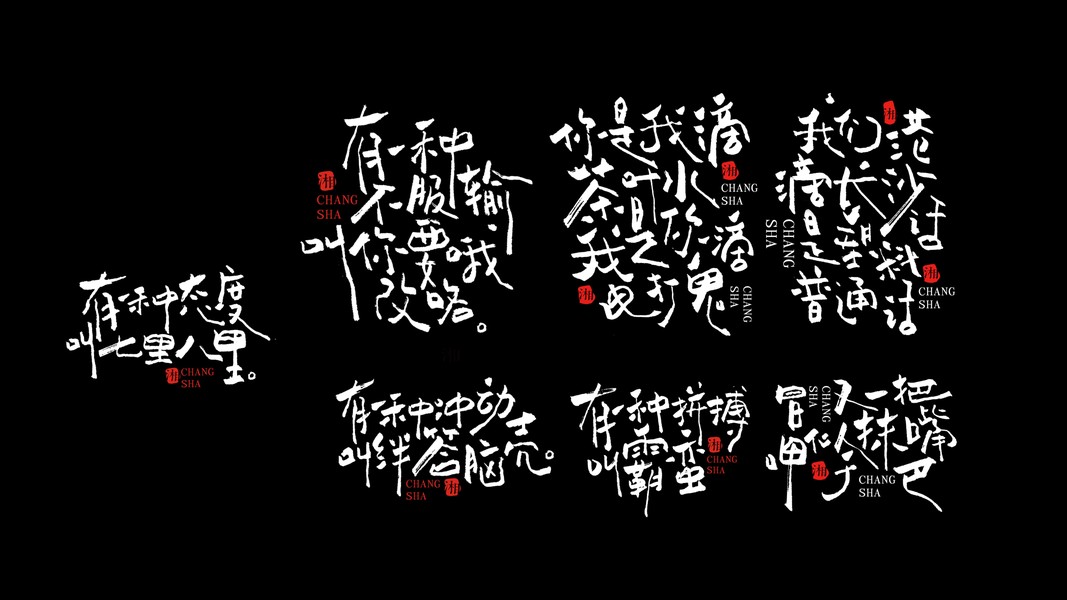 有一种态度
叫七里八里。
湘
CHANG
SHA
有一种
不服输
叫你要哦
改咯。
湘
CHANG
SHA
你是我滴
茶叶水
我是你滴
打鬼
湘
CHANG
SHA
湘
CHANG
SHA
我们港
滴长沙话
是塑料
普通话
湘
CHANG
SHA
湘
CHANG
SHA
有一种冲动
叫绊答脑壳。
CHANG
SHA
湘
有一种拼搏
叫霸蛮
湘
CHANG
SHA
把嘴巴
一抹
又人子
冒呷
CHANG
SHA
湘
CHANG
SHA